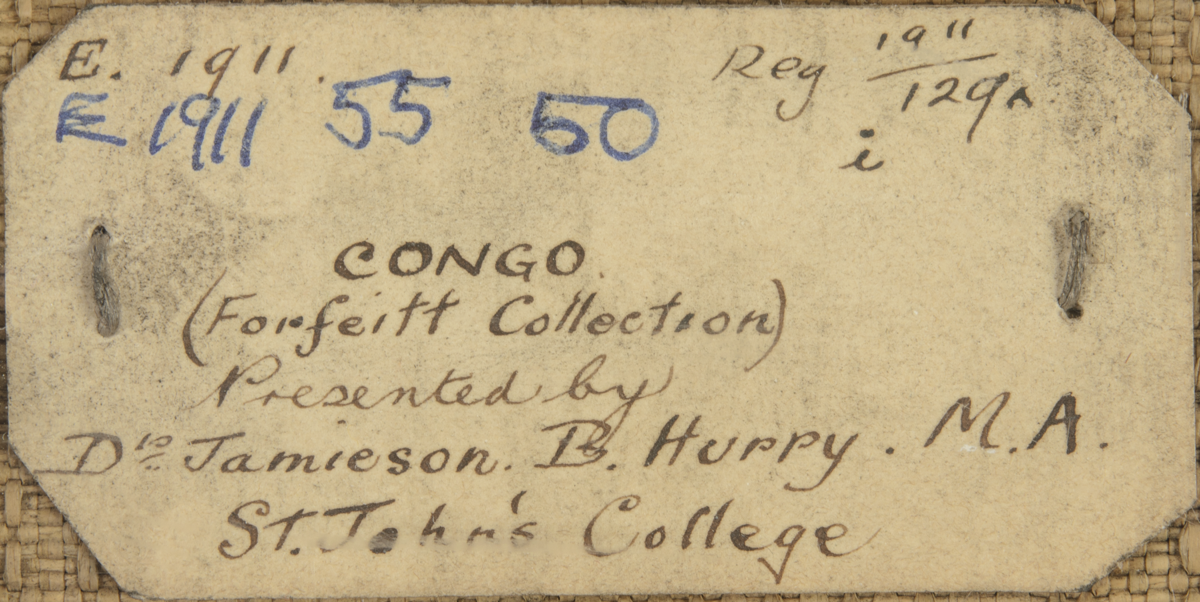 E. 1911.
Reg 1911/129A
E 1911 55 50
i
CONGO.
(Forfeitt Collection)
Presented by
Dr. Jamieson. B. Hurry. M.A.
St. John's College